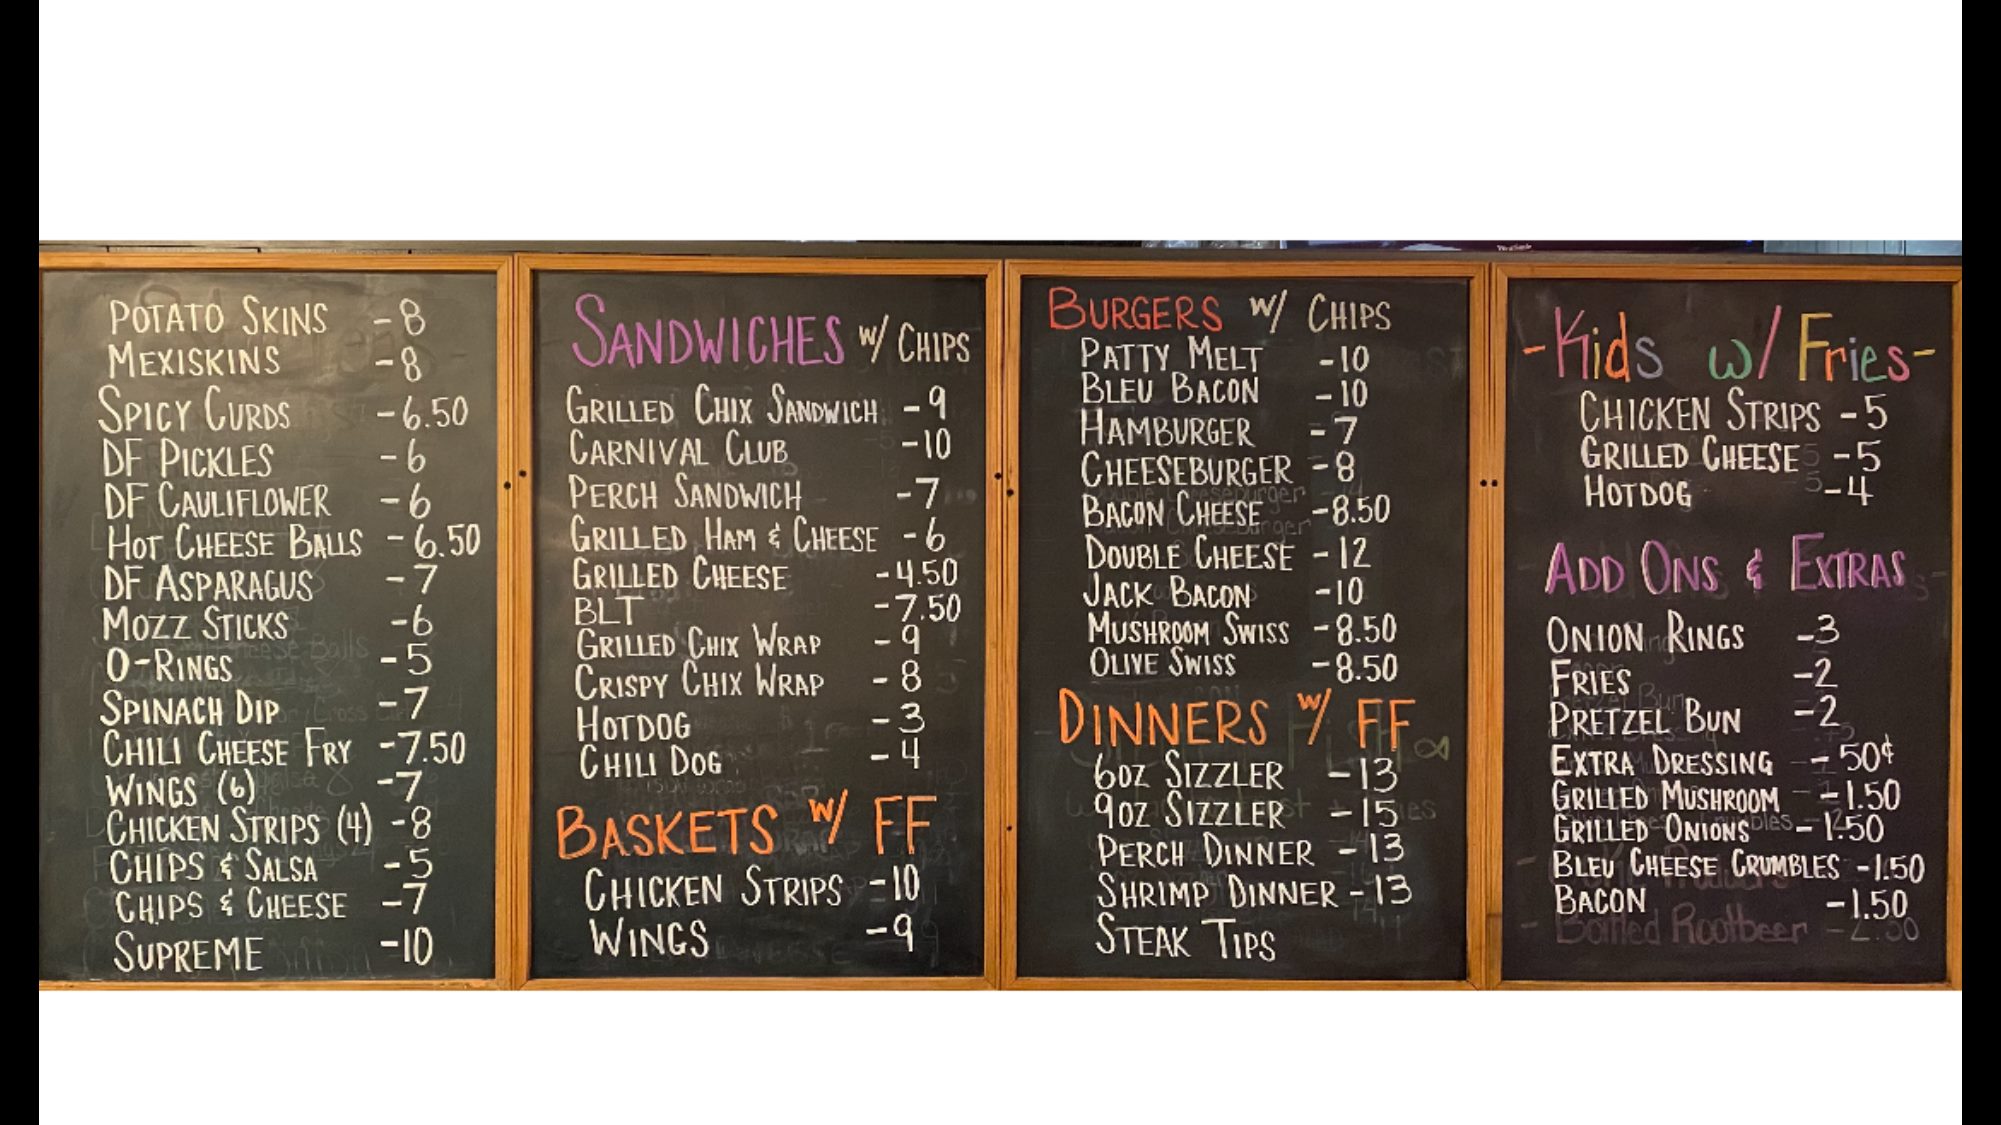 POTATO SKINS - 8
MEXISKINS - 8
SPICY CURDS - 6.50
DF PICKLES - 6
DF CAULIFLOWER - 6
HOT CHEESE BALLS - 6.50
DF ASPARAGUS - 7
MOZZ STICKS - 6
O-RINGS - 5
SPINACH DIP - 7
CHILI CHEESE FRY - 7.50
WINGS (6) - 7
CHICKEN STRIPS (4) - 8
CHIPS & SALSA - 5
CHIPS & CHEESE - 7
SUPREME - 10
SANDWICHES w/ CHIPS
GRILLED CHIX SANDWICH - 9
CARNIVAL CLUB - 10
PERCH SANDWICH - 7
GRILLED HAM & CHEESE - 6
GRILLED CHEESE - 4.50
BLT - 7.50
GRILLED CHIX WRAP - 9
CRISPY CHIX WRAP - 8
HOTDOG - 3
CHILI DOG - 4
BASKETS w/ FF
CHICKEN STRIPS - 10
WINGS - 9
BURGERS w/ CHIPS
PATTY MELT - 10
BLEU BACON - 10
HAMBURGER - 7
CHEESEBURGER - 8
BACON CHEESE - 8.50
DOUBLE CHEESE - 12
JACK BACON - 10
MUSHROOM SWISS - 8.50
OLIVE SWISS - 8.50
DINNERS w/ FF
6OZ SIZZLER - 13
9OZ SIZZLER - 15
PERCH DINNER - 13
SHRIMP DINNER - 13
STEAK TIPS
- Kids w/ Fries -
CHICKEN STRIPS - 5
GRILLED CHEESE - 5
HOTDOG - 4
ADD ONS & EXTRAS
ONION RINGS - 3
FRIES - 2
PRETZEL BUN - 2
EXTRA DRESSING - 50¢
GRILLED MUSHROOM - 1.50
GRILLED ONIONS - 1.50
BLEU CHEESE CRUMBLES - 1.50
BACON - 1.50
- Bottled Rootbeer - 2.50